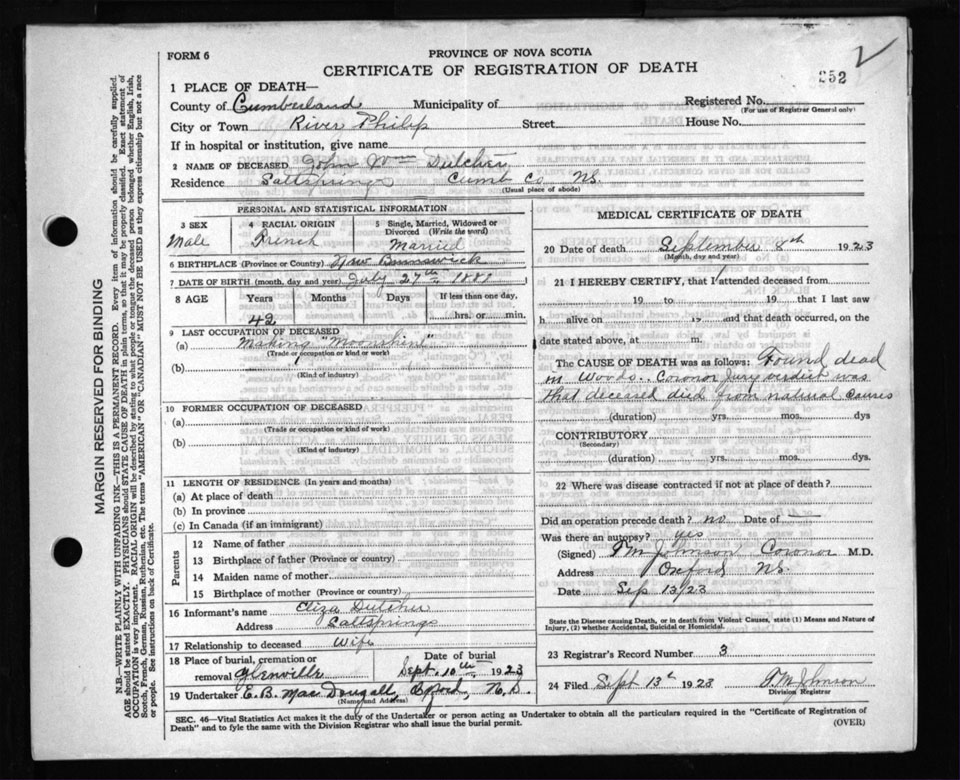 FORM 6
PROVINCE OF NOVA SCOTIA
CERTIFICATE OF REGISTRATION OF DEATH
252
1 PLACE OF DEATH—
County of Cumberland Municipality of Registered No.
(For use of Registrar General only)
City or Town River Philip Street House No.
If in hospital or institution, give name
2 NAME OF DECEASED John Wm Dulcher
Residence Saltsprings Cumb Co NS.
(Usual place of abode)
PERSONAL AND STATISTICAL INFORMATION
3 SEX
Male
4 RACIAL ORIGIN
French
5 Single, Married, Widowed or Divorced (Write the word)
Married
6 BIRTHPLACE (Province or Country) New Brunswick
7 DATE OF BIRTH (month, day and year) July 27th 1881
8 AGE Years Months Days If less than one day,
42 hrs. or min.
9 LAST OCCUPATION OF DECEASED
(a) Making "Moonshine"
(Trade or occupation or kind or work)
(b)
(Kind of industry)
10 FORMER OCCUPATION OF DECEASED
(a)
(Trade or occupation or kind of work)
(b)
(Kind of industry)
11 LENGTH OF RESIDENCE (In years and months)
(a) At place of death
(b) In province
(c) In Canada (if an immigrant)
Parents
12 Name of father
13 Birthplace of father (Province or country)
14 Maiden name of mother
15 Birthplace of mother (Province or country)
16 Informant's name Eliza Dulcher
Address Saltsprings
17 Relationship to deceased Wife
18 Place of burial, cremation or removal Glenville
Date of burial
Sept. 10th 1923
19 Undertaker E. B. MacDougall, Oxford, N.S.
(Name and Address)
MEDICAL CERTIFICATE OF DEATH
20 Date of death September 8th 1923
(Month, day and year)
21 I HEREBY CERTIFY, that I attended deceased from
19 to 19 that I last saw
h alive on 19 and that death occurred, on the
date stated above, at m.
The CAUSE OF DEATH was as follows: Found dead
in Woods.. Coronor Jury verdict was
that deceased died from natural causes
(duration) yrs. mos. dys
CONTRIBUTORY
(Secondary)
(duration) yrs. mos. dys.
22 Where was disease contracted if not at place of death?
Did an operation precede death? no Date of
Was there an autopsy? yes
(Signed) Johnson Coronor M.D.
Address Oxford NS.
Date Sep 13/23
State the Disease causing Death, or in death from Violent Causes, state (1) Means and Nature of Injury, (2) whether Accidental, Suicidal or Homicidal.
23 Registrar's Record Number 3
24 Filed Sept 13th 1923 Johnson
Division Registrar
SEC. 46—Vital Statistics Act makes it the duty of the Undertaker or person acting as Undertaker to obtain all the particulars required in the "Certificate of Registration of
Death" and to fyle the same with the Division Registrar who shall issue the burial permit.
(OVER)
MARGIN RESERVED FOR BINDING
N.B.—WRITE PLAINLY WITH UNFADING INK—THIS IS A PERMANENT RECORD. Every item of information should be carefully supplied.
AGE should be stated EXACTLY. PHYSICIANS should STATE CAUSE OF DEATH in plain terms, so that it may be properly classified. Exact statement of
OCCUPATION is very important. RACIAL ORIGIN will be described by stating to what people or tongue the deceased person belonged whether English, Irish,
Scotch, French, German, Russian, Ruthenian, etc. The terms "AMERICAN" OR "CANADIAN" MUST NOT BE USED as they express citizenship but not a race
or people. See instructions on back of Certificate.